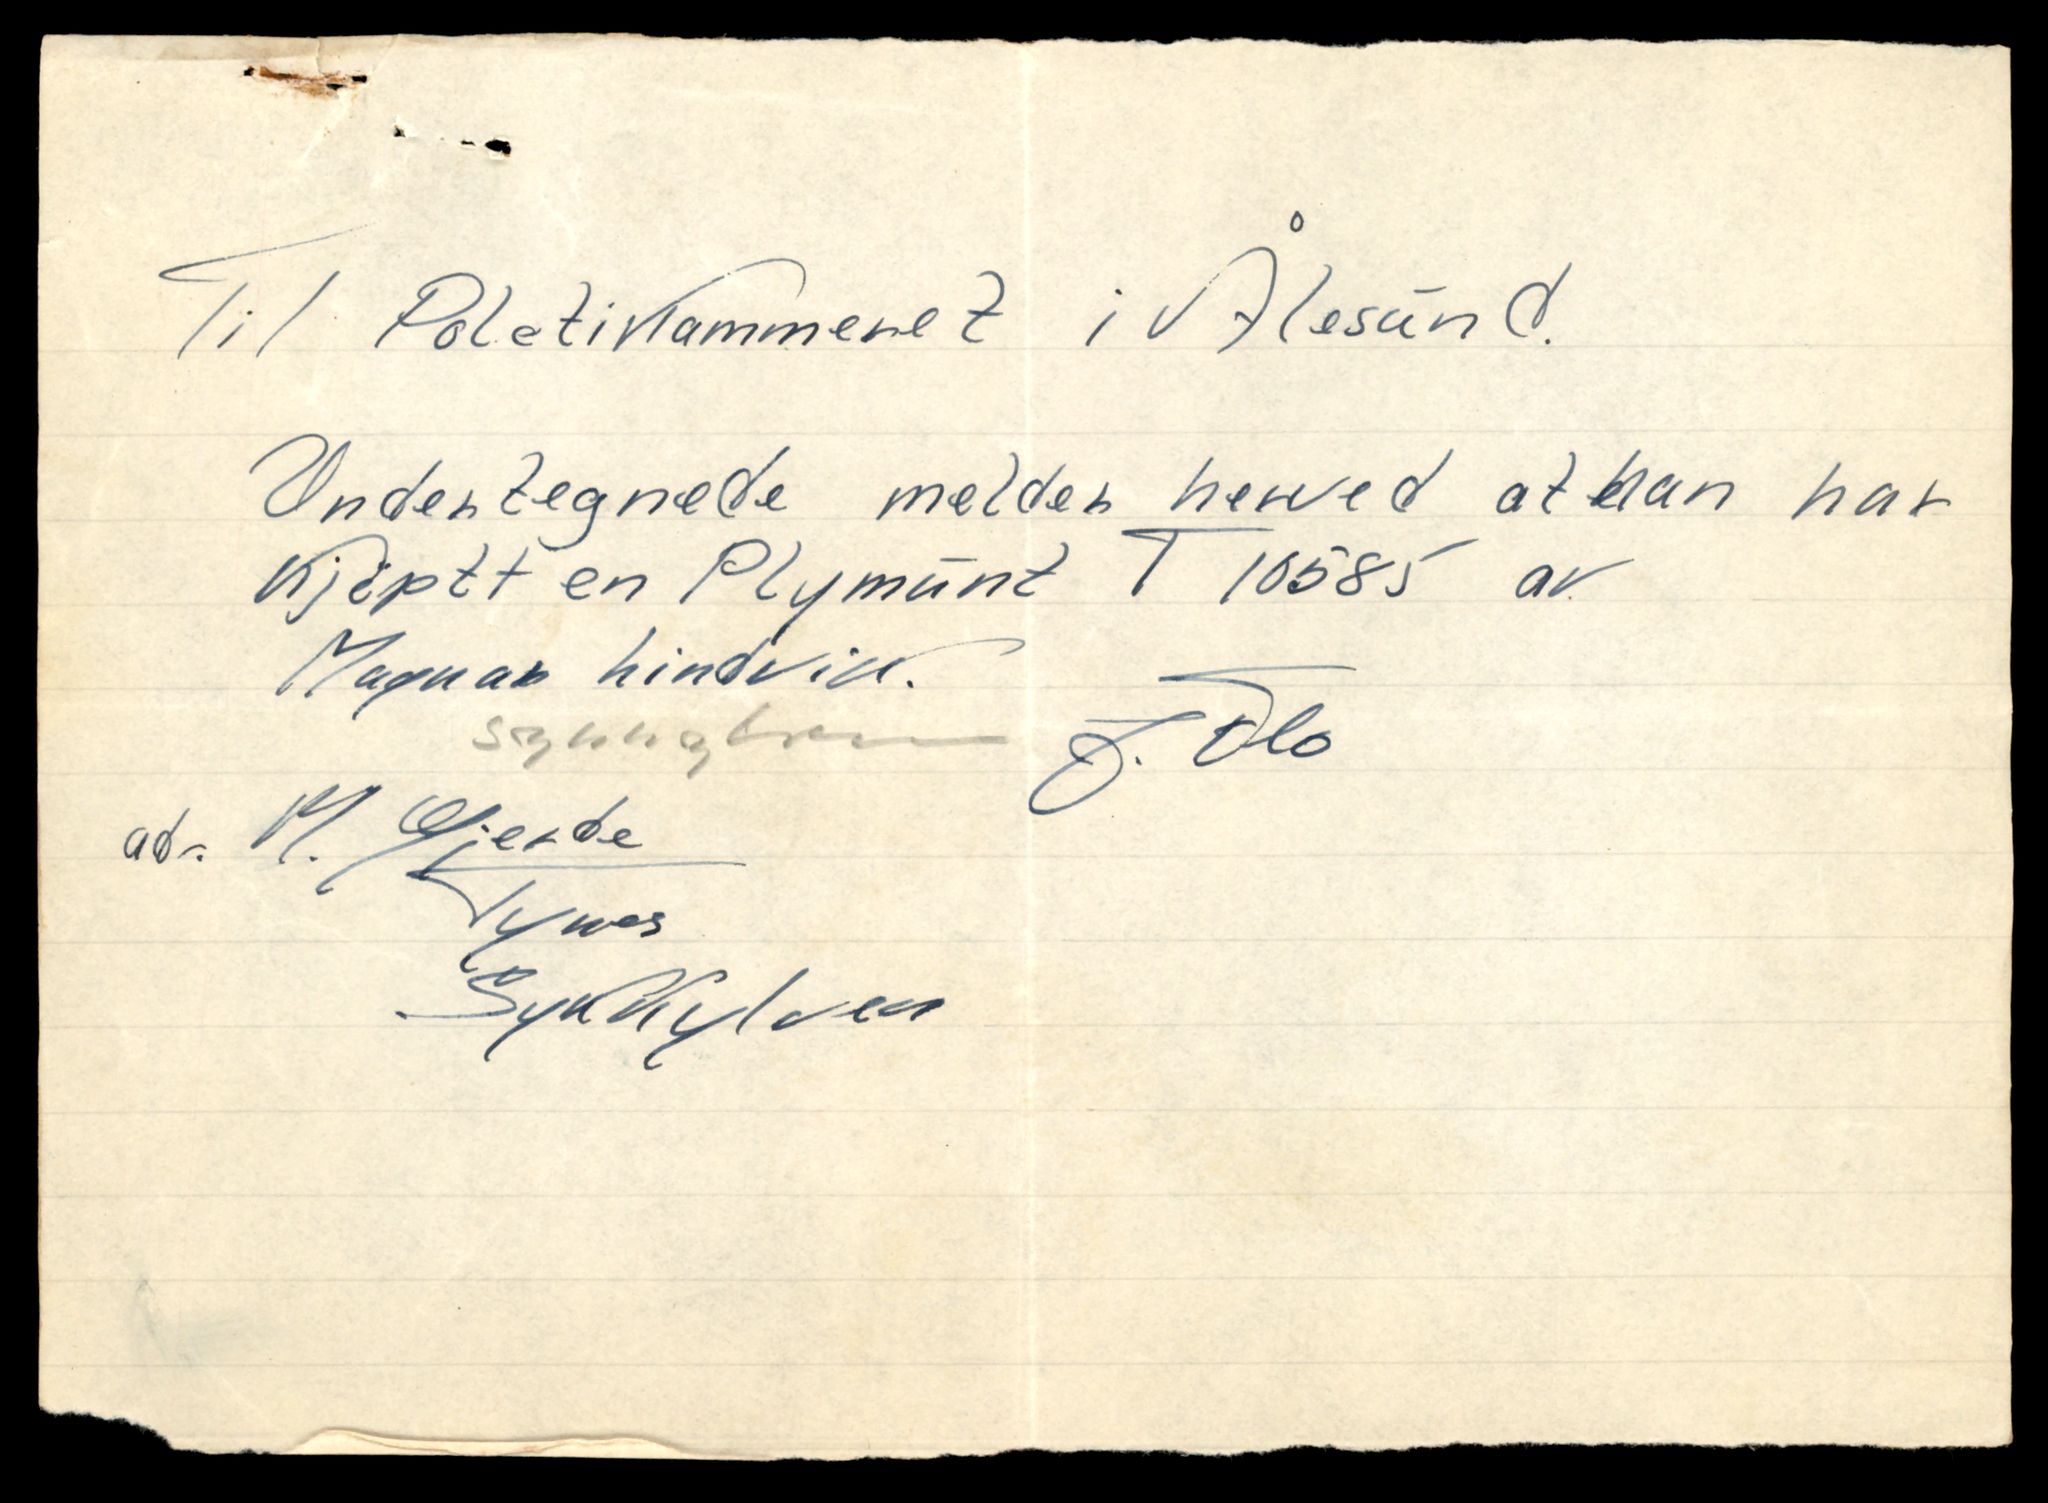 Til Poletikammeret i Ålesund.
Undertegnede melder herved at han har
kjøptt en Plymunt T 10585 av
Magnar Lindvik.
J. Flo
adr. M. Gjerde
Tynes
Sykkylven